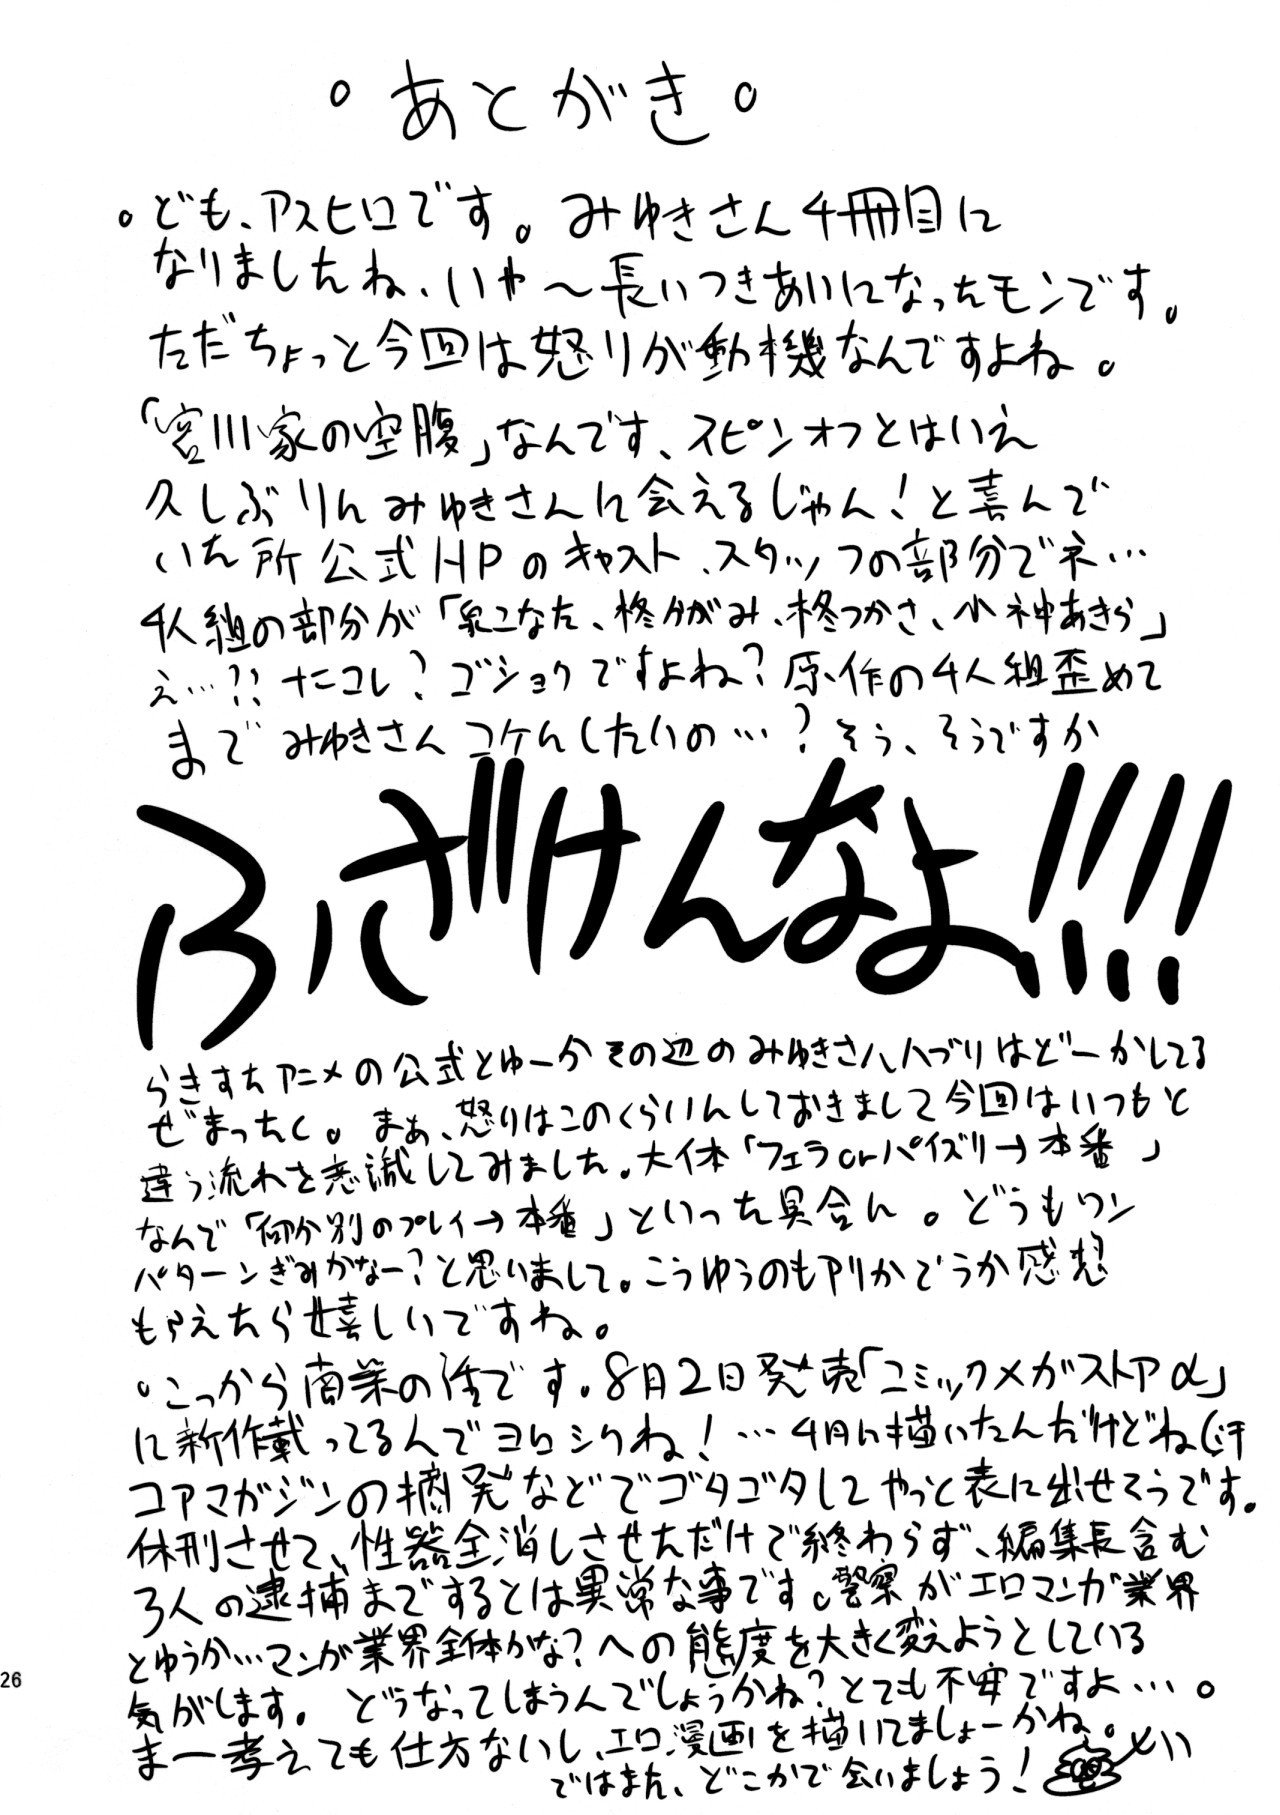 。あとがき。
。ども、アスヒロです。みゆきさん4冊目に
なりましたね、いや〜長いつきあいになったモンです。
ただちょっと今回は怒りが動機なんですよね。
「宮川家の空腹」なんです、スピンオフとはいえ
久しぶりにみゆきさんに会えるじゃん!と喜んで
いた所公式HPのキャスト、スタッフの部分でネ…
4人組の部分が「泉こなた、柊かがみ、柊つかさ、小神あきら」
え…?? ナニコレ?ゴショクですよね?原作の4人組歪めて
までみゆきさんコケにしたいの…?そう、そうですか
ふざけんなよ!!!!
らきすたアニメの公式とゆーかその辺のみゆきさんハブりはどーかしてる
ぜまったく。まぁ、怒りはこのくらいにしておきまして今回はいつもと
違う流れを意識してみました。大体「フェラorパイズリ→本番」
なんで「何か別のプレイ→本番」といった具合に。どうもワン
パターンぎみかなー?と思いまして。こうゆうのもアリかどうか感想
もらえたら嬉しいですね。
。こっから商業の話です。8月2日発売「コミックメガストアα」
に新作載ってるんでヨロシクね!…4月に描いたんだけどね(汗
コアマガジンの摘発などでゴタゴタしてやっと表に出せそうです。
休刊させて、性器全消しさせただけで終わらず、編集長含む
3人の逮捕までするとは異常な事です。警察がエロマンガ業界
とゆうか…マンガ業界全体かな?への態度を大きく変えようとしている
気がします。どうなってしまうんでしょうかね?とても不安ですよ…。
まー考えても仕方ないし、エロ漫画を描いてましょーかね。
ではまた、どこかで会いましょう!
26